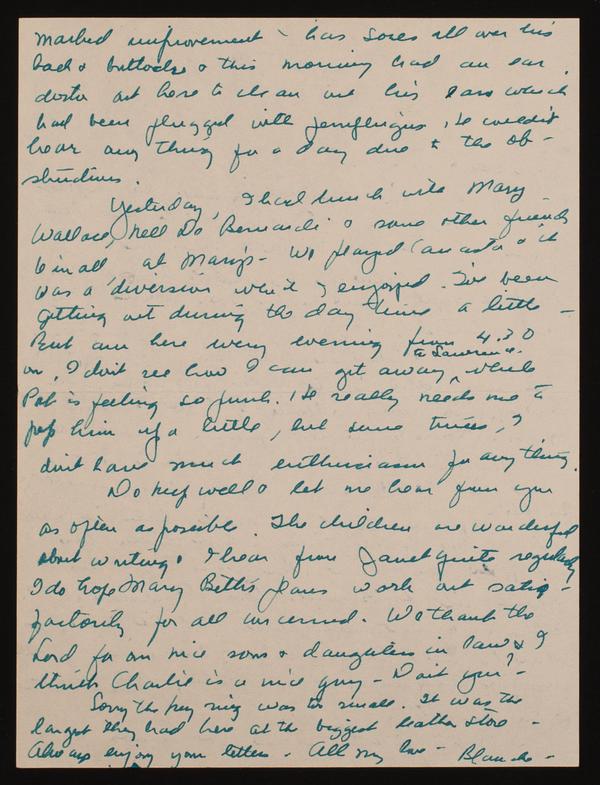 marked improvement - has sores all over his
back & buttocks & this morning had an ear
doctor out here to clean out his ears which
had been plugged with, he couldn't
hear any thing for a day due to the ob-
structions.
Yesterday, I had lunch with Mary
Wallace, Nell De Bernardi & some other friends
6 in all at Mary's - We played Canasta & it
was a diversion which I enjoyed. I've been
getting out during the day time a little -
But am here every evening from 4.30
on, I don't see how I can get away while
to Lawrence.
Pat is feeling so punk. He really needs me to
pep him up a little, but some times, I
don't have much enthusiasm for any thing.
Do keep well & let me hear from you
as often as possible. The children are wonderful
about writing & I hear from Janet quite regularly
I do hope Mary Beth's plans work out satis-
factorily for all concerned. We thank the
Lord for our nice sons & daughters in law & I
think Charlie is a nice guy - Don't you? -
Sorry the key ring was too small. It was the
largest they had here at the biggest leather store -
Always enjoy your letters - All my love - Blanche -